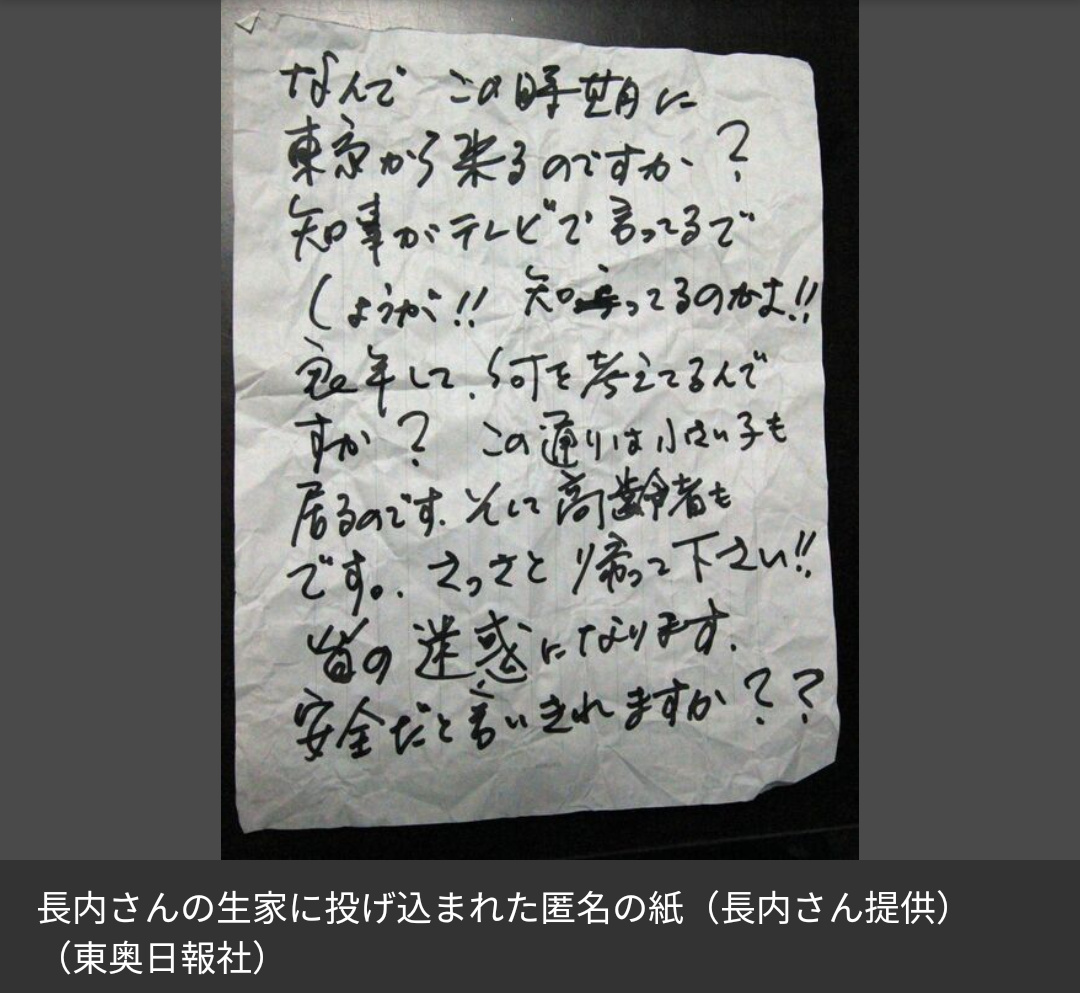 なんで この時期に
東京から来るのですか?
知事がテレビで言ってるで
しょうが!! 知ってるのかよ!!
良年して、何を考えてるんで
すか? この通りは小さい子も
居るのです。そして高齢者も
です。. さっさと帰って下さい!!
皆の迷惑になります。
安全だと言いきれますか??
長内さんの生家に投げ込まれた匿名の紙（長内さん提供）
（東奥日報社）